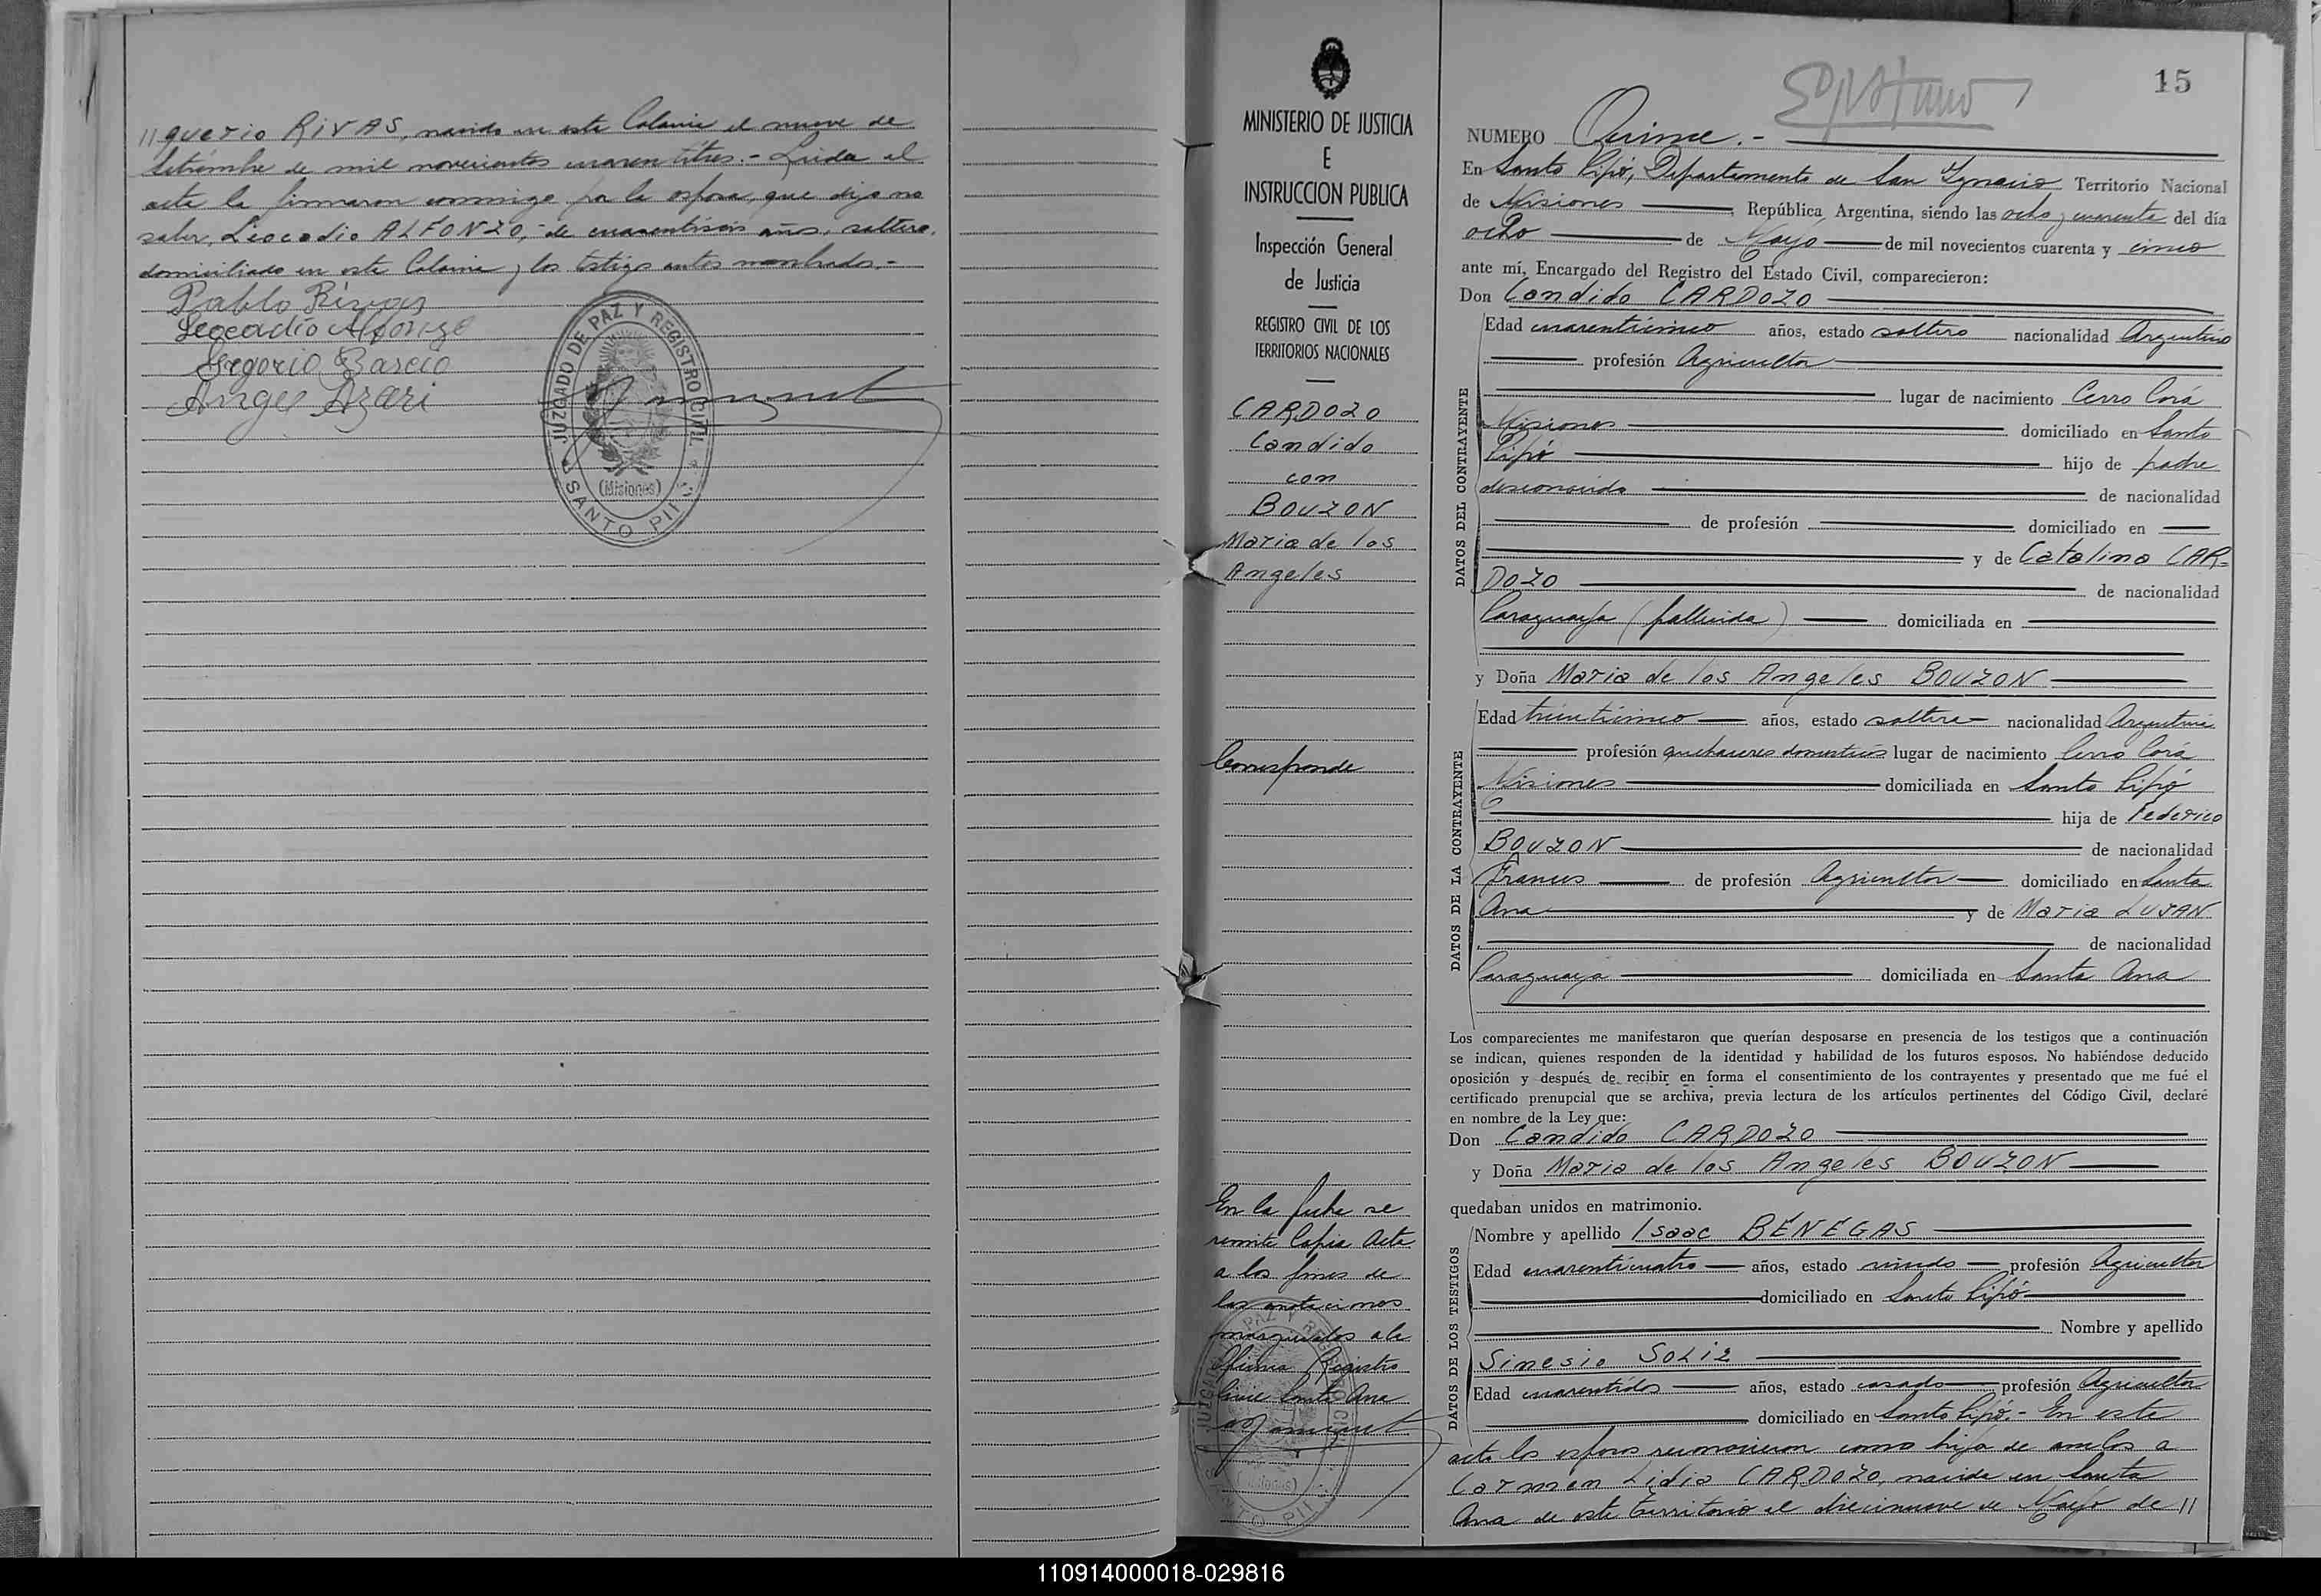 //querio RIVAS, nacido en esta Colonia el nueve de
Setiembre de mil novecientos cuarentitres.- Leída el
acta la firmaron conmigo por la esposa, que dijo no
saber, Leocadio ALFONZO,- de cuarentiseis años, soltero,
domiciliado en esta Colonia y los testigos antes nombrados.-
Pablo Rivas
Leocadio Alfonzo
Gregorio Bareio
Angel Azari
JUZGADO DE PAZ Y REGISTRO CIVIL
(Misiones)
SANTO PIPÓ
MINISTERIO DE JUSTICIA
E
INSTRUCCION PUBLICA
Inspección General
de Justicia
REGISTRO CIVIL DE LOS
TERRITORIOS NACIONALES
CARDOZO
Candido
con
BOUZON
Maria de los
Angeles
Corresponde
En la fecha se
remite Copia Acta
a los fines de
las anotaciones
marginales a la
Oficina Registro
Civil Santa Ana
15
NUMERO Quince.-
En Santo Pipó, Departamento de San Ignacio Territorio Nacional
de Misiones, República Argentina, siendo las ocho y cuarenta del día
ocho de Mayo de mil novecientos cuarenta y cinco
ante mí, Encargado del Registro del Estado Civil, comparecieron:
Don Candido CARDOZO
DATOS DEL CONTRAYENTE
Edad cuarenticinco años, estado soltero nacionalidad Argentino
profesión Agricultor
lugar de nacimiento Cerro Corá
Misiones domiciliado en Santo
Pipó hijo de padre
desconocido de nacionalidad
de profesión domiciliado en
y de Catalina CAR-
DOZO de nacionalidad
Paraguaya (fallecida) domiciliada en
y Doña Maria de los Angeles BOUZON
DATOS DE LA CONTRAYENTE
Edad treinticinco años, estado soltera nacionalidad Argentina
profesión quehaceres domesticos lugar de nacimiento Cerro Corá
Misiones domiciliada en Santo Pipó
hija de Federico
BOUZON de nacionalidad
Frances de profesión Agricultor domiciliado en Santa
Ana y de Maria LUJAN
de nacionalidad
Paraguaya domiciliada en Santa Ana
Los comparecientes me manifestaron que querían desposarse en presencia de los testigos que a continuación
se indican, quienes responden de la identidad y habilidad de los futuros esposos. No habiéndose deducido
oposición y después de recibir en forma el consentimiento de los contrayentes y presentado que me fué el
certificado prenupcial que se archiva, previa lectura de los artículos pertinentes del Código Civil, declaré
en nombre de la Ley que:
Don Candido CARDOZO
y Doña Maria de los Angeles BOUZON
quedaban unidos en matrimonio.
DATOS DE LOS TESTIGOS
Nombre y apellido Isaac BENEGAS
Edad cuarenticuatro años, estado viudo profesión Agricultor
domiciliado en Santo Pipó
Nombre y apellido
Sinesio SOLIZ
Edad cuarentidos años, estado casado profesión Agricultor
domiciliado en Santo Pipó.- En este
acto los esposos reconocieron como hija de ambos a
Carmen Lidia CARDOZO, nacida en Santa
Ana de este territorio el diecinueve de Mayo de //
110914000018-029816